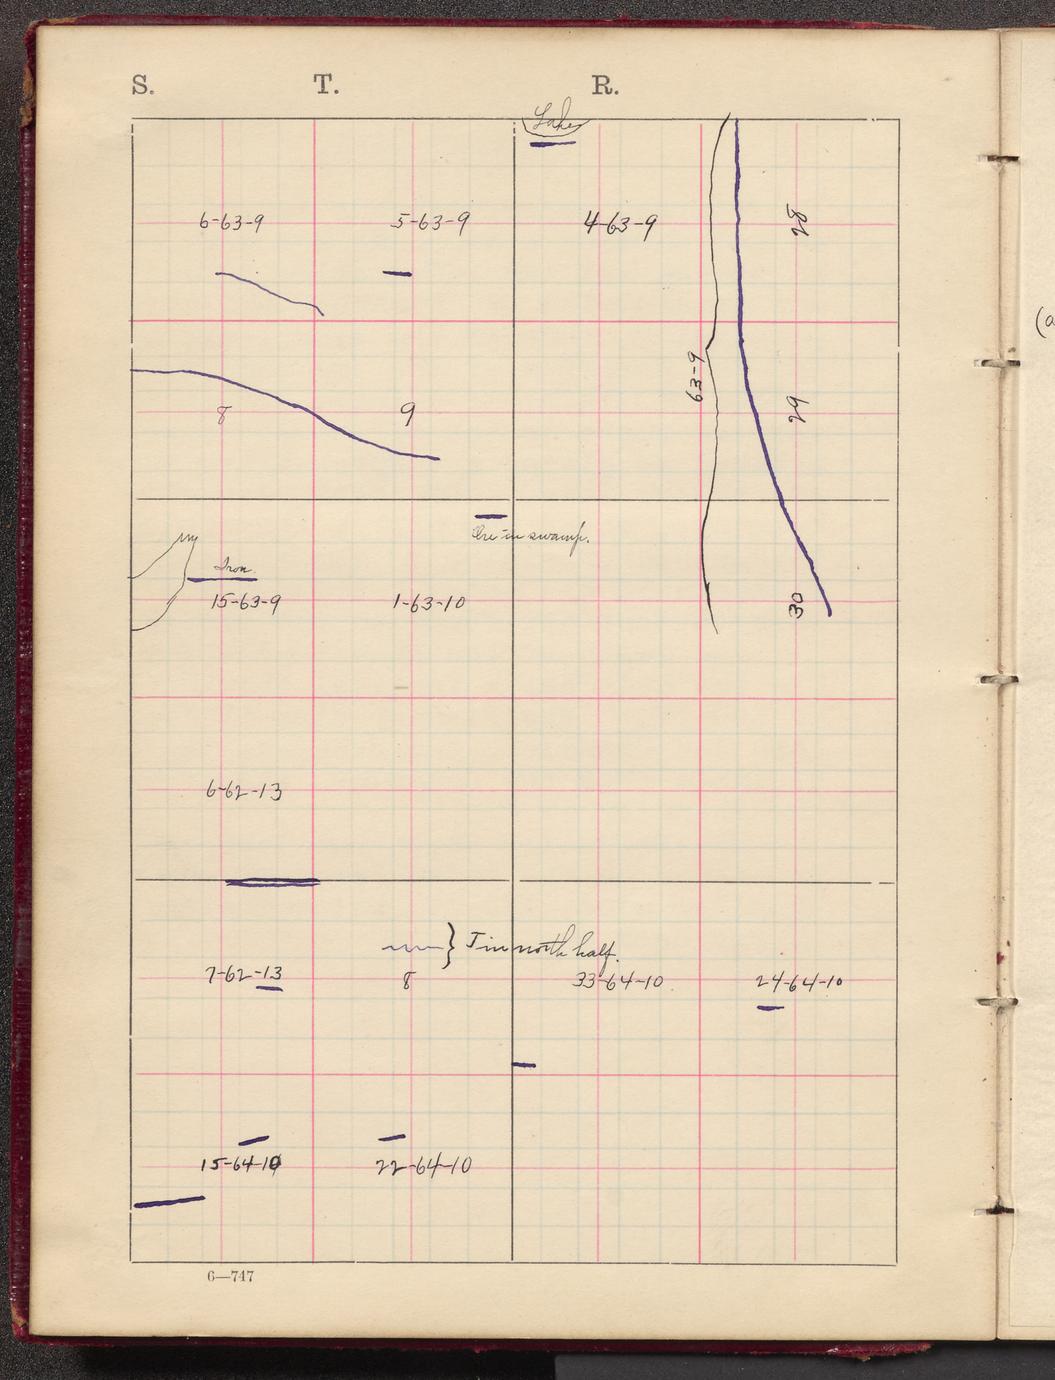 S. T. R.
Lake
6-63-9 5-63-9 4-63-9 28
63-9
8 9 29
Ore in swamp.
Iron
15-63-9 1-63-10 30
6-62-13
} I in north half.
7-62-13 8 33-64-10 24-64-10
15-64-10 22-64-10
6—747
(a